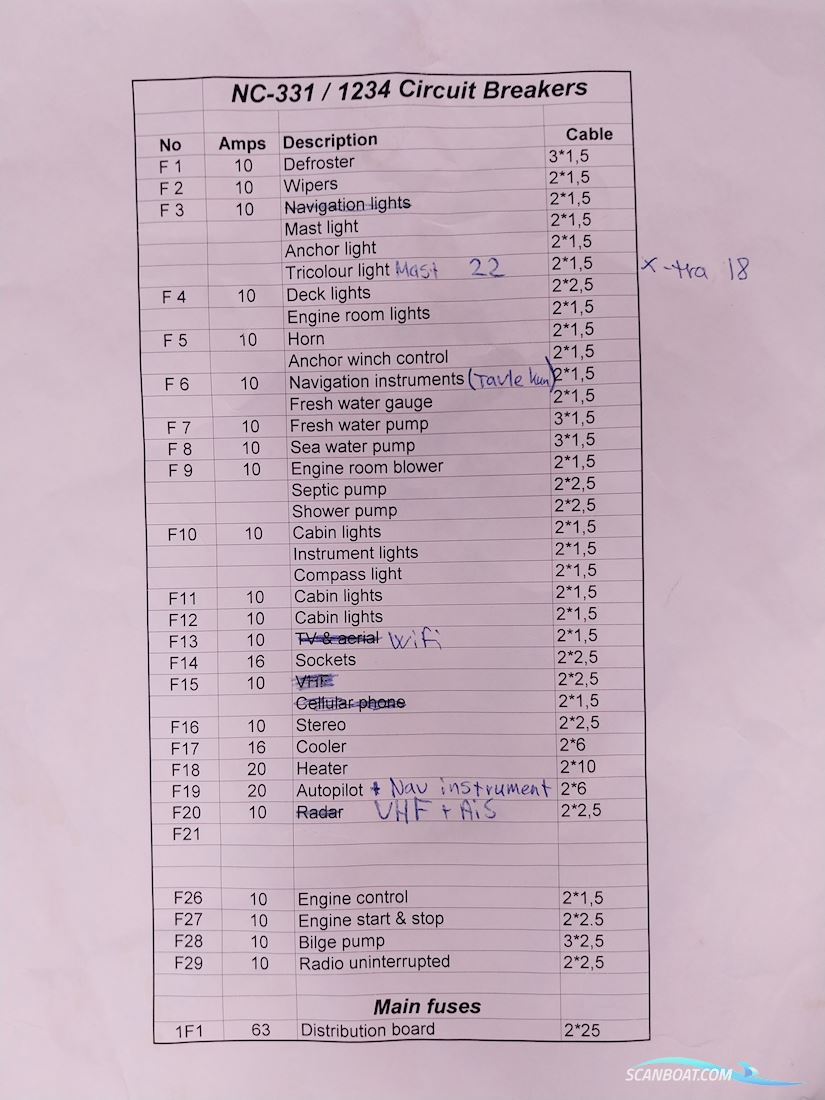 NC-331 / 1234 Circuit Breakers
No Amps Description Cable
F 1 10 Defroster 3*1,5
F 2 10 Wipers 2*1,5
F 3 10 Navigation lights 2*1,5
Mast light 2*1,5
Anchor light 2*1,5
Tricolour light Mast 22 2*1,5 x-tra 18
F 4 10 Deck lights 2*2,5
Engine room lights 2*1,5
F 5 10 Horn 2*1,5
Anchor winch control 2*1,5
F 6 10 Navigation instruments (Tavle kun) 2*1,5
Fresh water gauge 2*1,5
F 7 10 Fresh water pump 3*1,5
F 8 10 Sea water pump 3*1,5
F 9 10 Engine room blower 2*1,5
Septic pump 2*2,5
Shower pump 2*2,5
F10 10 Cabin lights 2*1,5
Instrument lights 2*1,5
Compass light 2*1,5
F11 10 Cabin lights 2*1,5
F12 10 Cabin lights 2*1,5
F13 10 TV & aerial Wifi 2*1,5
F14 16 Sockets 2*2,5
F15 10 VHF 2*2,5
Cellular phone 2*1,5
F16 10 Stereo 2*2,5
F17 16 Cooler 2*6
F18 20 Heater 2*10
F19 20 Autopilot + Nav instrument 2*6
F20 10 Radar VHF + AiS 2*2,5
F21
F26 10 Engine control 2*1,5
F27 10 Engine start & stop 2*2.5
F28 10 Bilge pump 3*2,5
F29 10 Radio uninterrupted 2*2,5
Main fuses
1F1 63 Distribution board 2*25
SCANBOAT.COM